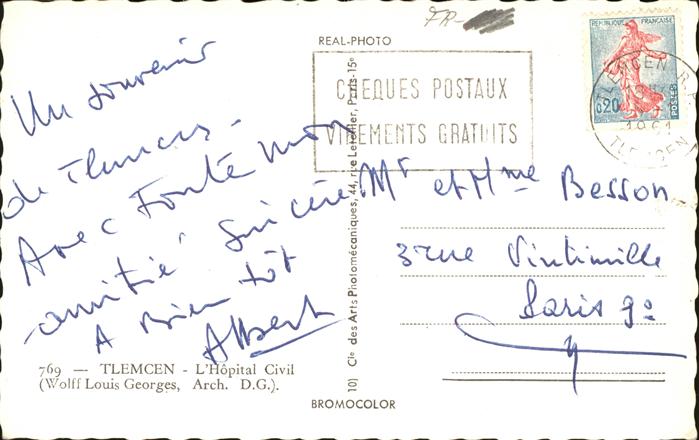 FR-
REAL-PHOTO
REPUBLIQUE FRANÇAISE
0,20
POSTES
TLEMCEN R.P.
1961
TLEMCEN
CHEQUES POSTAUX
VIREMENTS GRATUITS
Un souvenir
de Tlemcen.
Avec toute mon
amitié sincère
A bien tôt
Albert
Mr et Mme Besson
3 rue Vintimille
Paris 9e
769 — TLEMCEN - L'Hôpital Civil
(Wolff Louis Georges, Arch. D.G.).
10) Cie des Arts Photomécaniques, 44, rue Letellier, Paris-15e
BROMOCOLOR